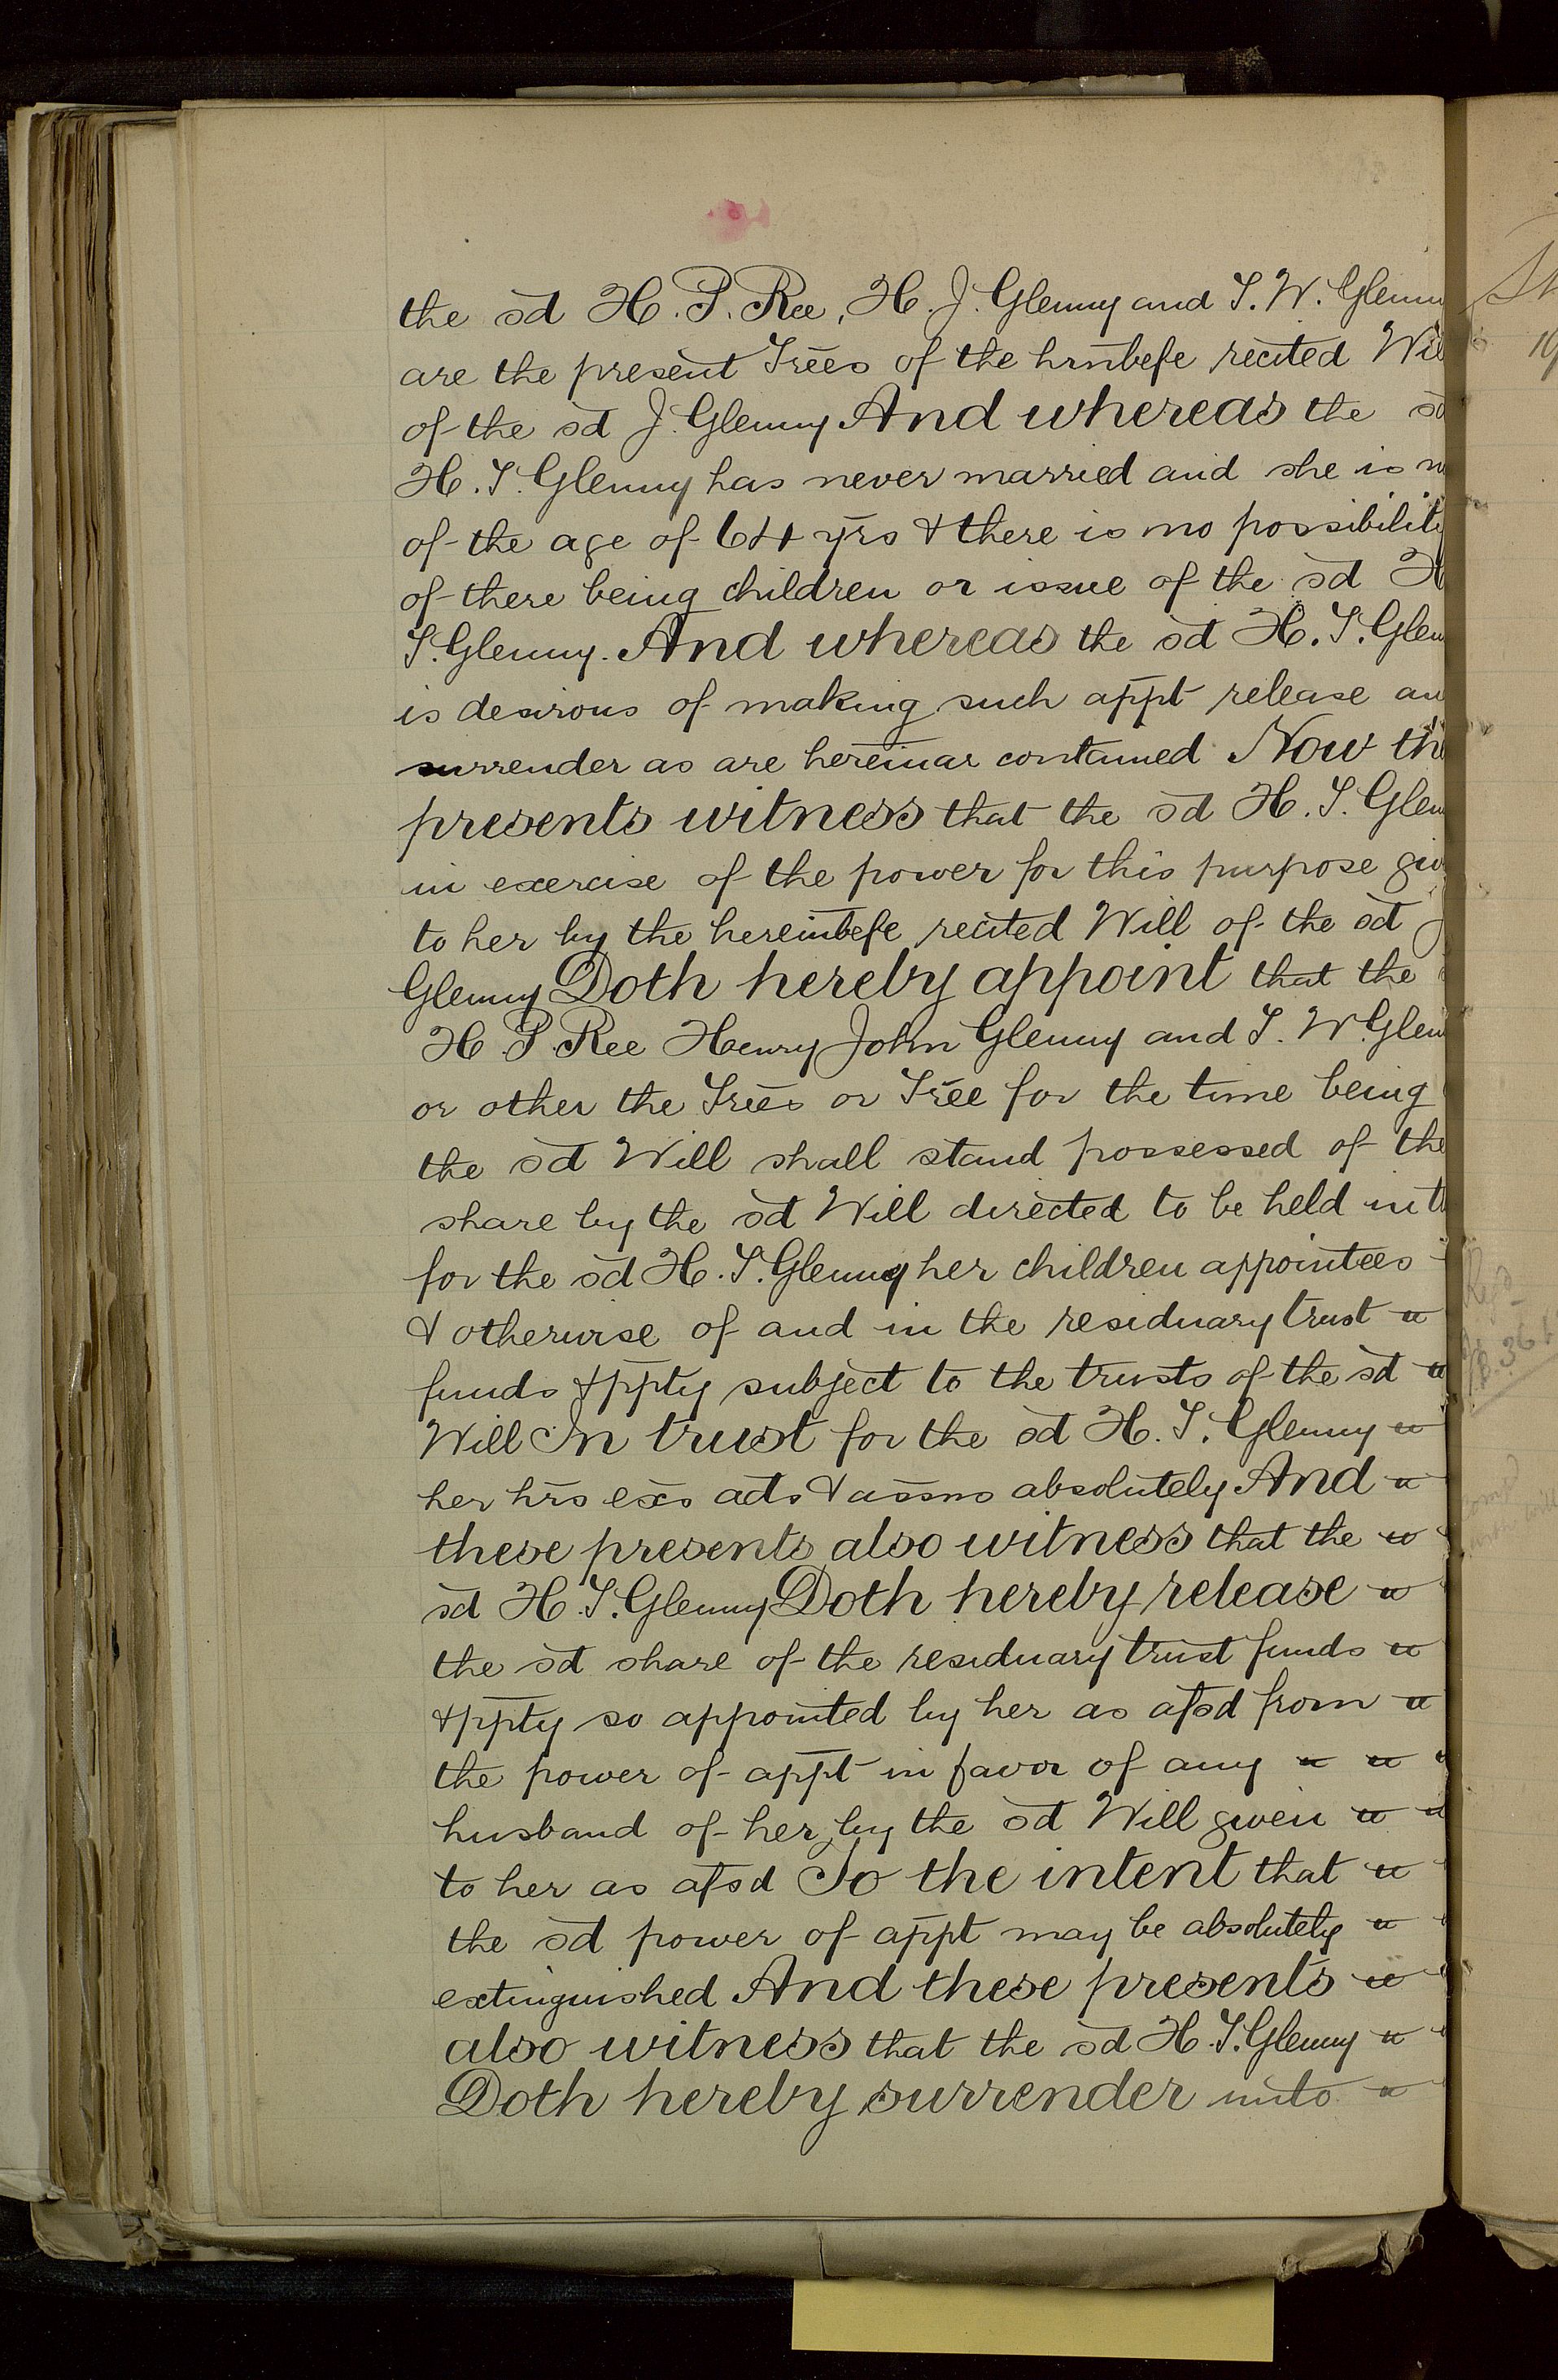 the sd H. P. Ree, H. J. Glenny and T. W. Glenn
are the present Trees of the hrnbefe recited Wil
of the sd J. Glenny And whereas the sd
H. T. Glenny has never married and she is n
of the age of 64 yrs & there is no possibility
of there being children or issue of the sd H
T. Glenny. And whereas the sd H. T. Glen
is desirous of making such appt release an
surrender as are hereinar contained Now the
presents witness that the sd H. T. Glen
in exercise of the power for this purpose giv
to her by the hereinbefe recited Will of the sd J
Glenny Doth hereby appoint that the
H. P. Ree Henry John Glenny and T. W. Glen
or other the Trees or Tree for the time being
the sd Will shall stand possessed of the
share by the sd Will directed to be held in t
for the sd H. T. Glenny her children appointees
& otherwise of and in the residuary trust
funds & ppty subject to the trusts of the sd
Will In trust for the sd H. T. Glenny
her hrs exs ads & assns absolutely And
these presents also witness that the
sd H. T. Glenny Doth hereby release
the sd share of the residuary trust funds
& ppty so appointed by her as afsd from
the power of appt in favor of any
husband of her by the sd Will given
to her as afsd To the intent that
the sd power of appt may be absolutely
extinguished And these presents
also witness that the sd H. T. Glenny
Doth hereby surrender unto